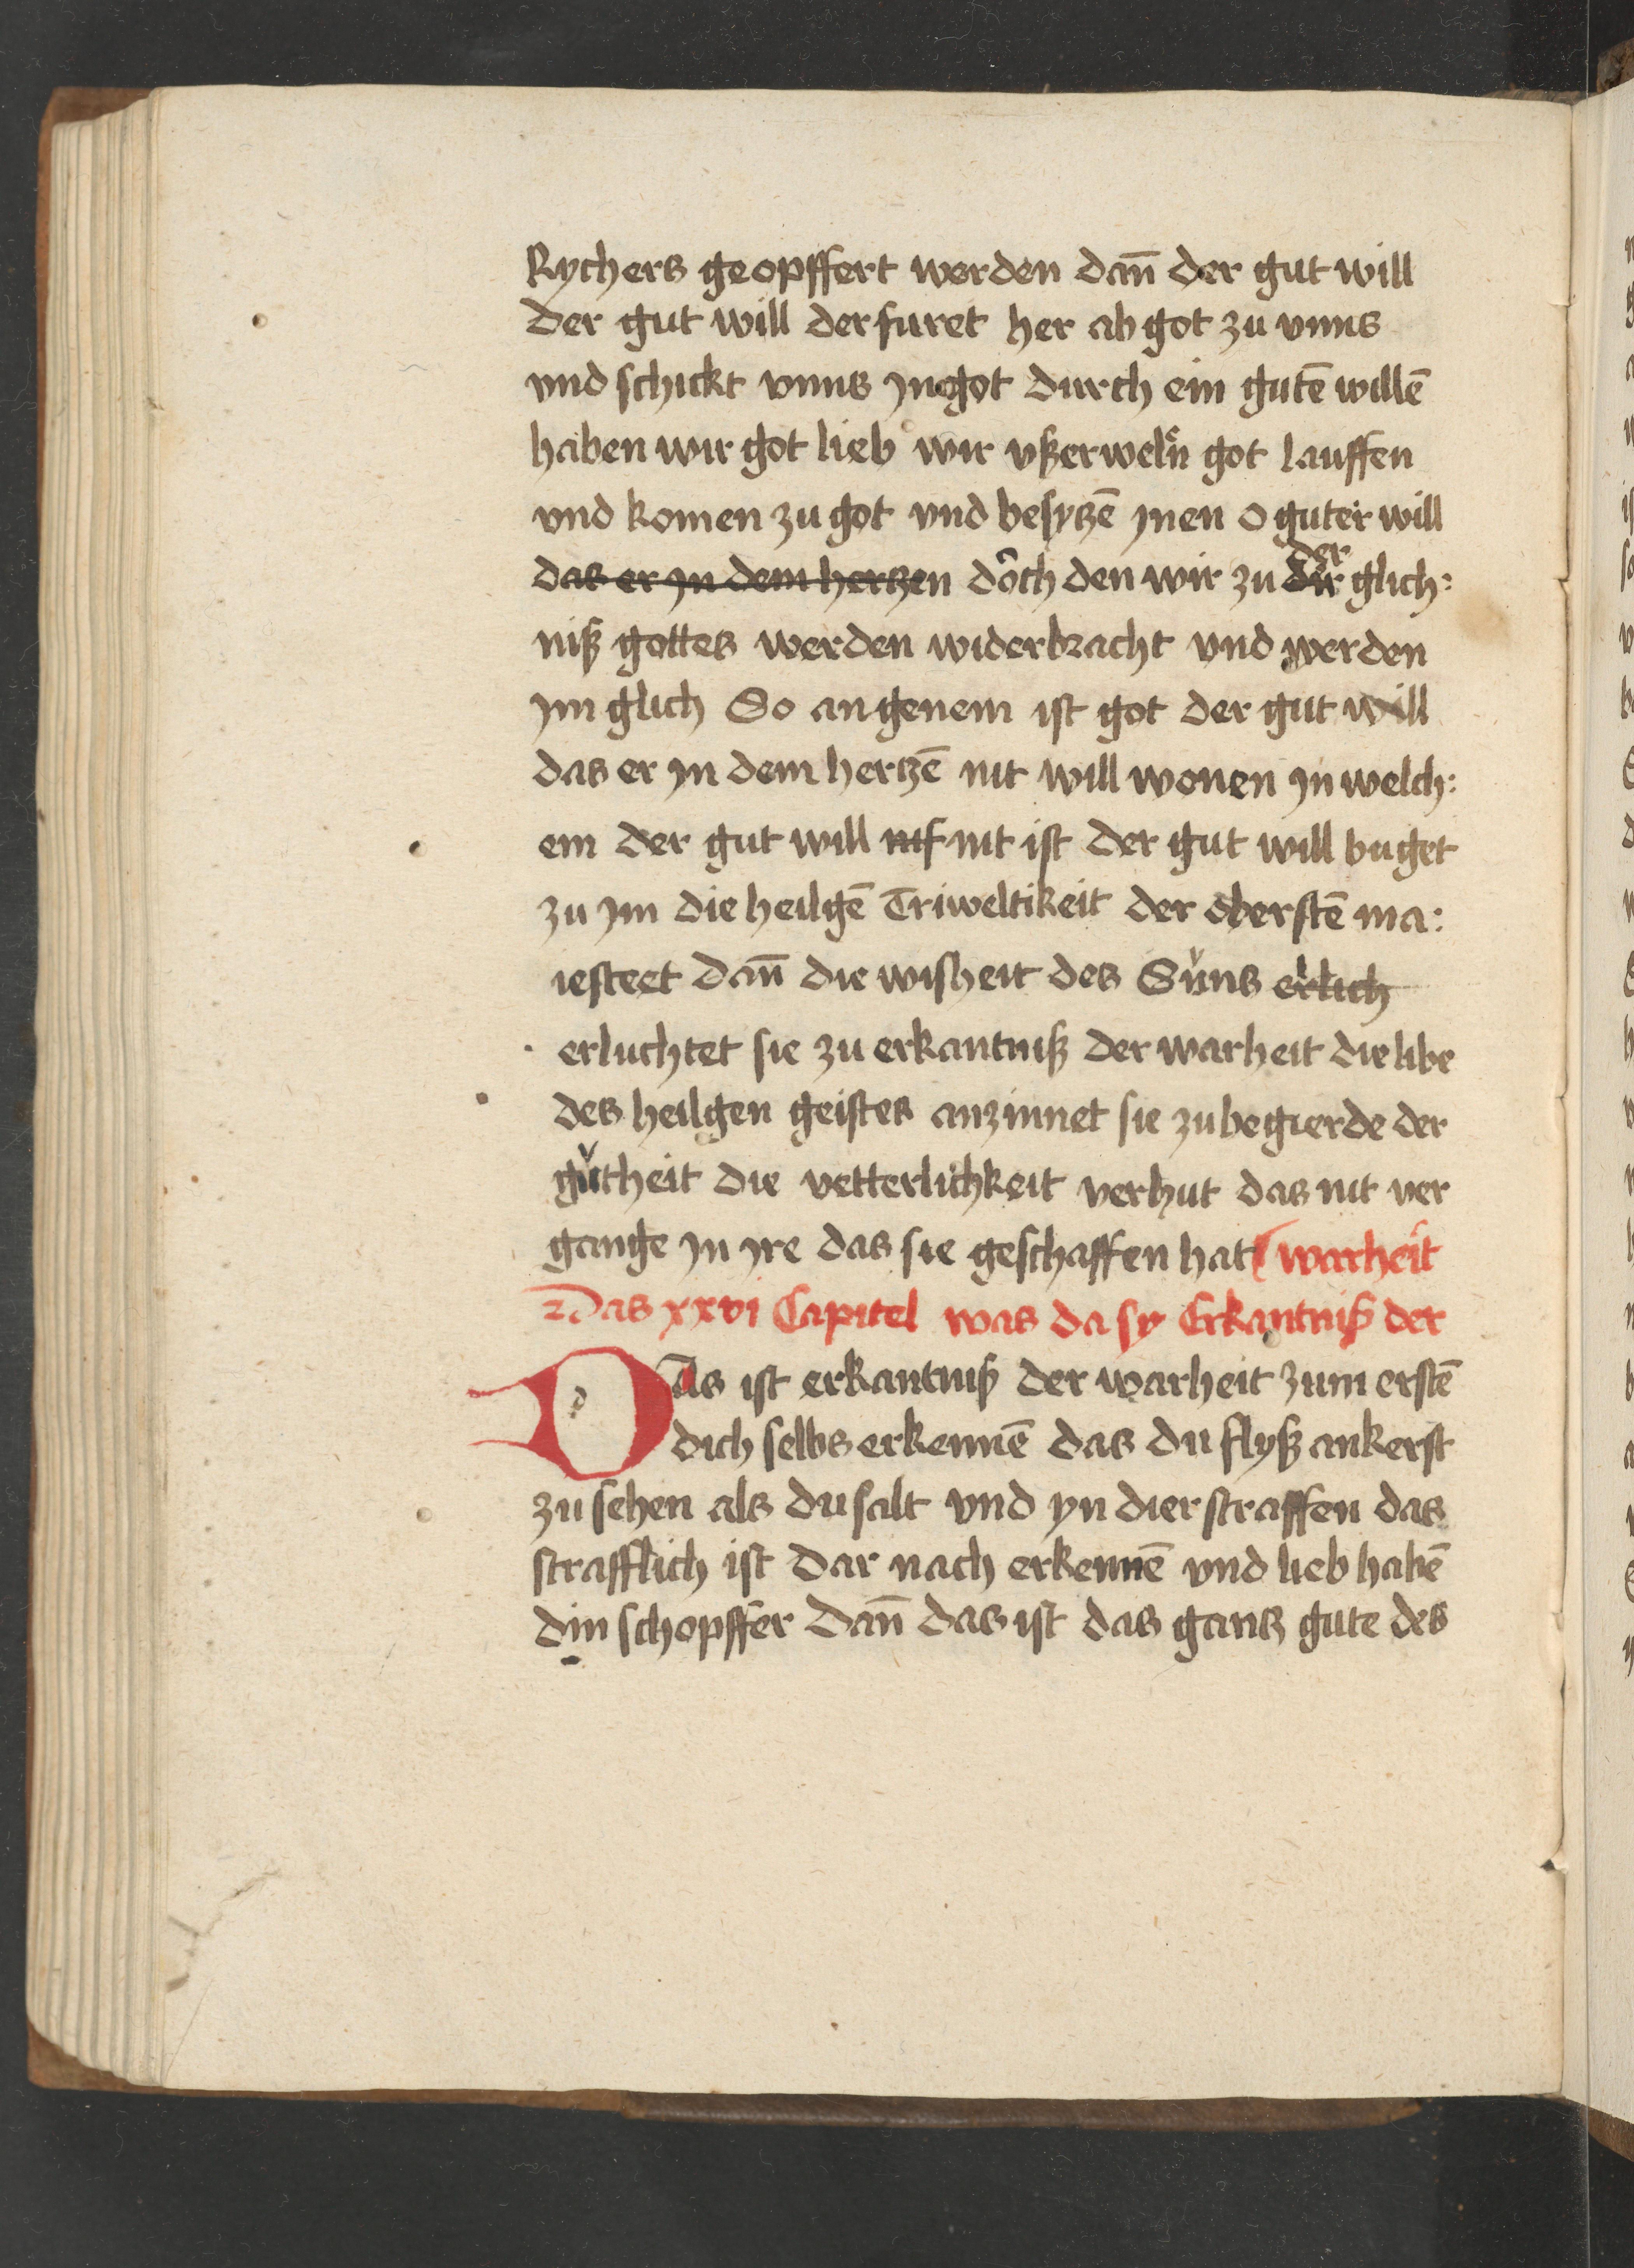 Rychers geopffert werden dan̄ der gut will
der gut will der furet her ab got zu vnns
vnd schickt vnns jn got durch ein gutē willē
haben wir got lieb wir vßerweln̄ got lauffen
vnd komen zu got vnd besytzē jnen o guter will
das er jn dem hertzen dorch den wir zu dir der glich:
niß gottes werden widerbracht vnd werden
jm glich So an genem ist got der gut will
das er jn dem hertzē nit will wonen jn welch:
em der gut will nif nit ist der gut will buget
zu jm die heilgē Triweltikeit der oberstē ma:
iesteet dan̄ die wisheit des Suns erlich
erluchtet sie zu erkantniß der warheit die libe
des heilgen geistes anzinnet sie zu begierde der
gutheit die vetterlichkeit verhut das nit ver
gange jn jre das sie geschaffen hat warheit
Das xxvi Capitel was da sy Erkantniß der
Das ist erkantniß der warheit zum erstē
dich selbs erkennē das du flyß ankerst
zu sehen als du salt vnd yn dier straffen das
strafflich ist dar nach erkennē vnd lieb habē
din schopffer dan̄ das ist das gans gute des